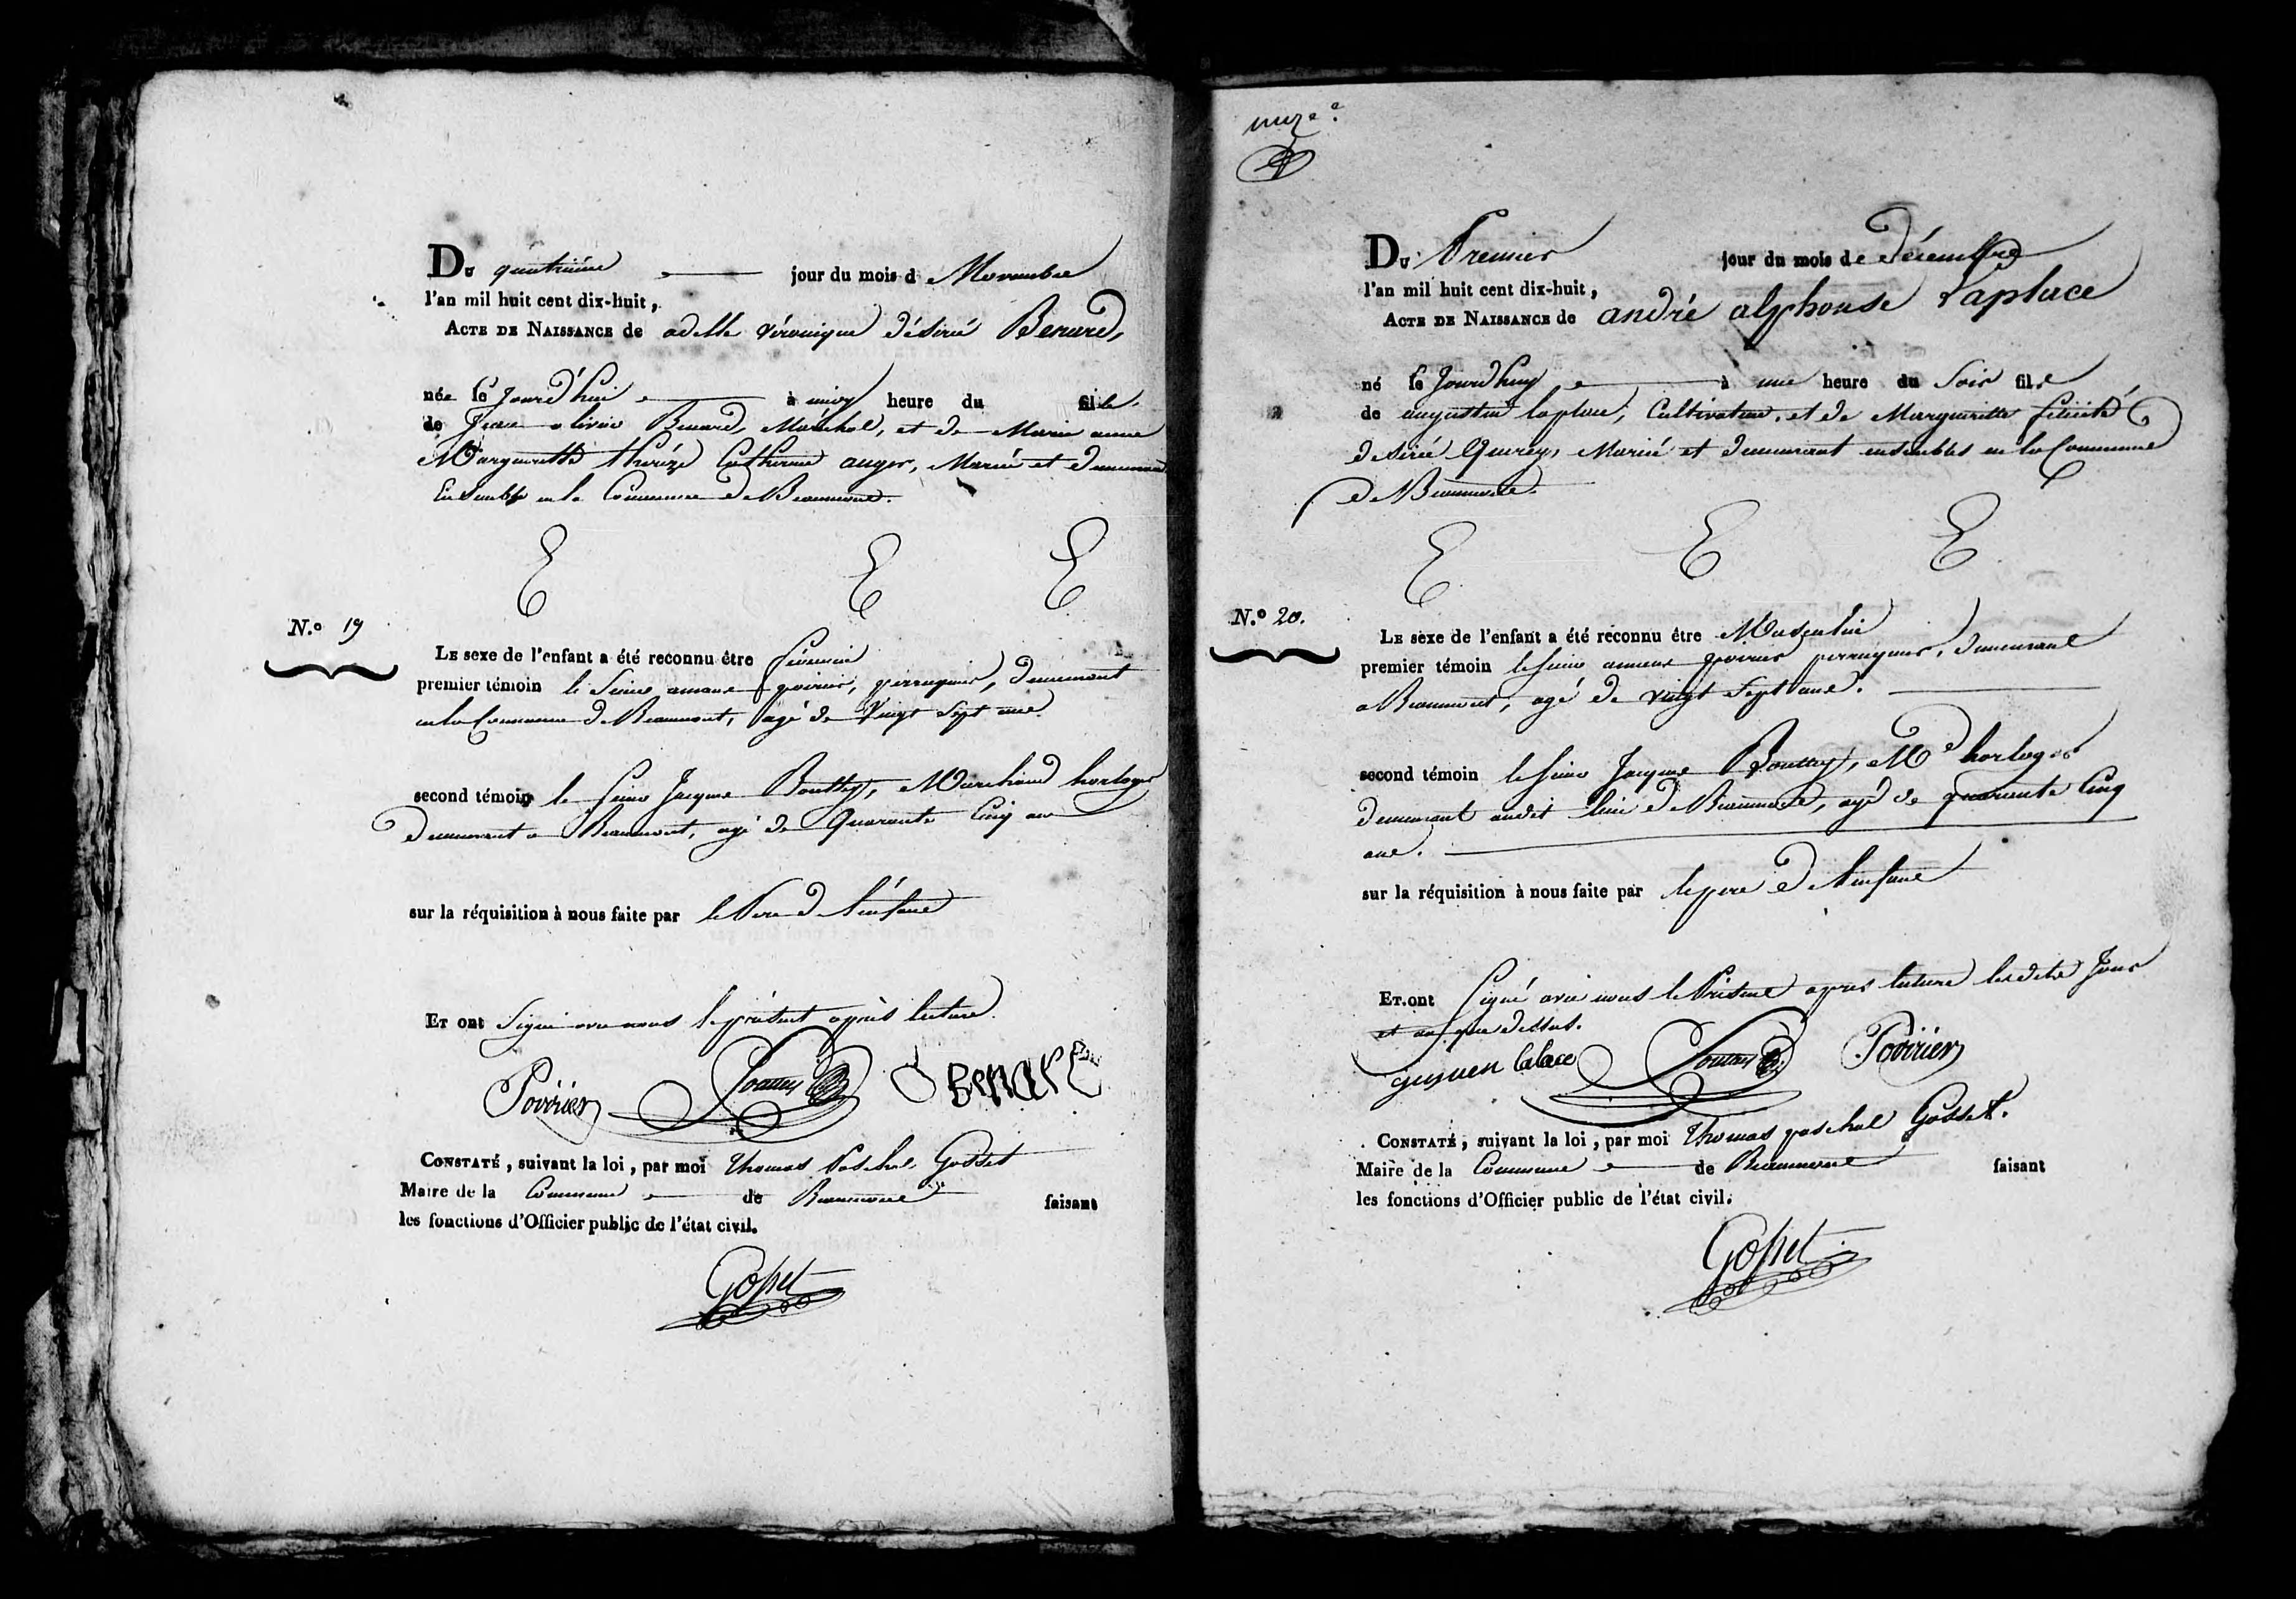 DU quatrième jour du mois d Novembre
l'an mil huit cent dix-huit,
ACTE DE NAISSANCE de adelle véronique désirée Benard,
née le Jourd'hui à midy heure du fille
de Jean olivier Benard, Maréchal, et de Marie anne
Margueritte thérèze Catherine auger, Mariés et demeurant
Ensemble en la Commune de Beaumont.
N.º 19
LE sexe de l'enfant a été reconnu être féminin
premier témoin le Sieur amant poirier, perruquier, demeurant
en la Commune de Beaumont, agé de Vingt Sept ans
second témoin le Sieur Jacque Bouttey, Marchand horloger
demeurant a Beaumont, agé de Quarante Cinq ans
sur la réquisition à nous faite par le Pere de l'enfant
ET ont Signé avec nous le présent après lecture.
Poirier Benard
CONSTATÉ, suivant la loi, par moi Thomas Paschal Gosset
Maire de la Commune de Beaumont faisant
les fonctions d'Officier public de l'état civil.
Gosset
DU Premier jour du mois de décembre
l'an mil huit cent dix-huit,
ACTE DE NAISSANCE de andré alphonse Laplace
né le Jourd'huy à une heure du Soir fils
de augustin laplace, Cultivateur, et de Margueritte félicité
désiré Quirey, Marié et demeurant ensembles en la Commune
de Beaumont.
N.º 20.
LE sexe de l'enfant a été reconnu être Masculin
premier témoin le Sieur amant poirier perruquier, demeurant
a Beaumont, agé de vingt Sept ans.
second témoin le Sieur Jacque Bouttey, Md horloger
demeurant audit lieu de Beaumont, agé de quarante Cinq
ans.
sur la réquisition à nous faite par le pere de l'enfant
ET ont Signé avec nous le Présent apres lecture lesdits Jour
et an que dessus.
Poirier
CONSTATÉ, suivant la loi, par moi Thomas paschal Gosset.
Maire de la Commune de Beaumont faisant
les fonctions d'Officier public de l'état civil.
Gosset